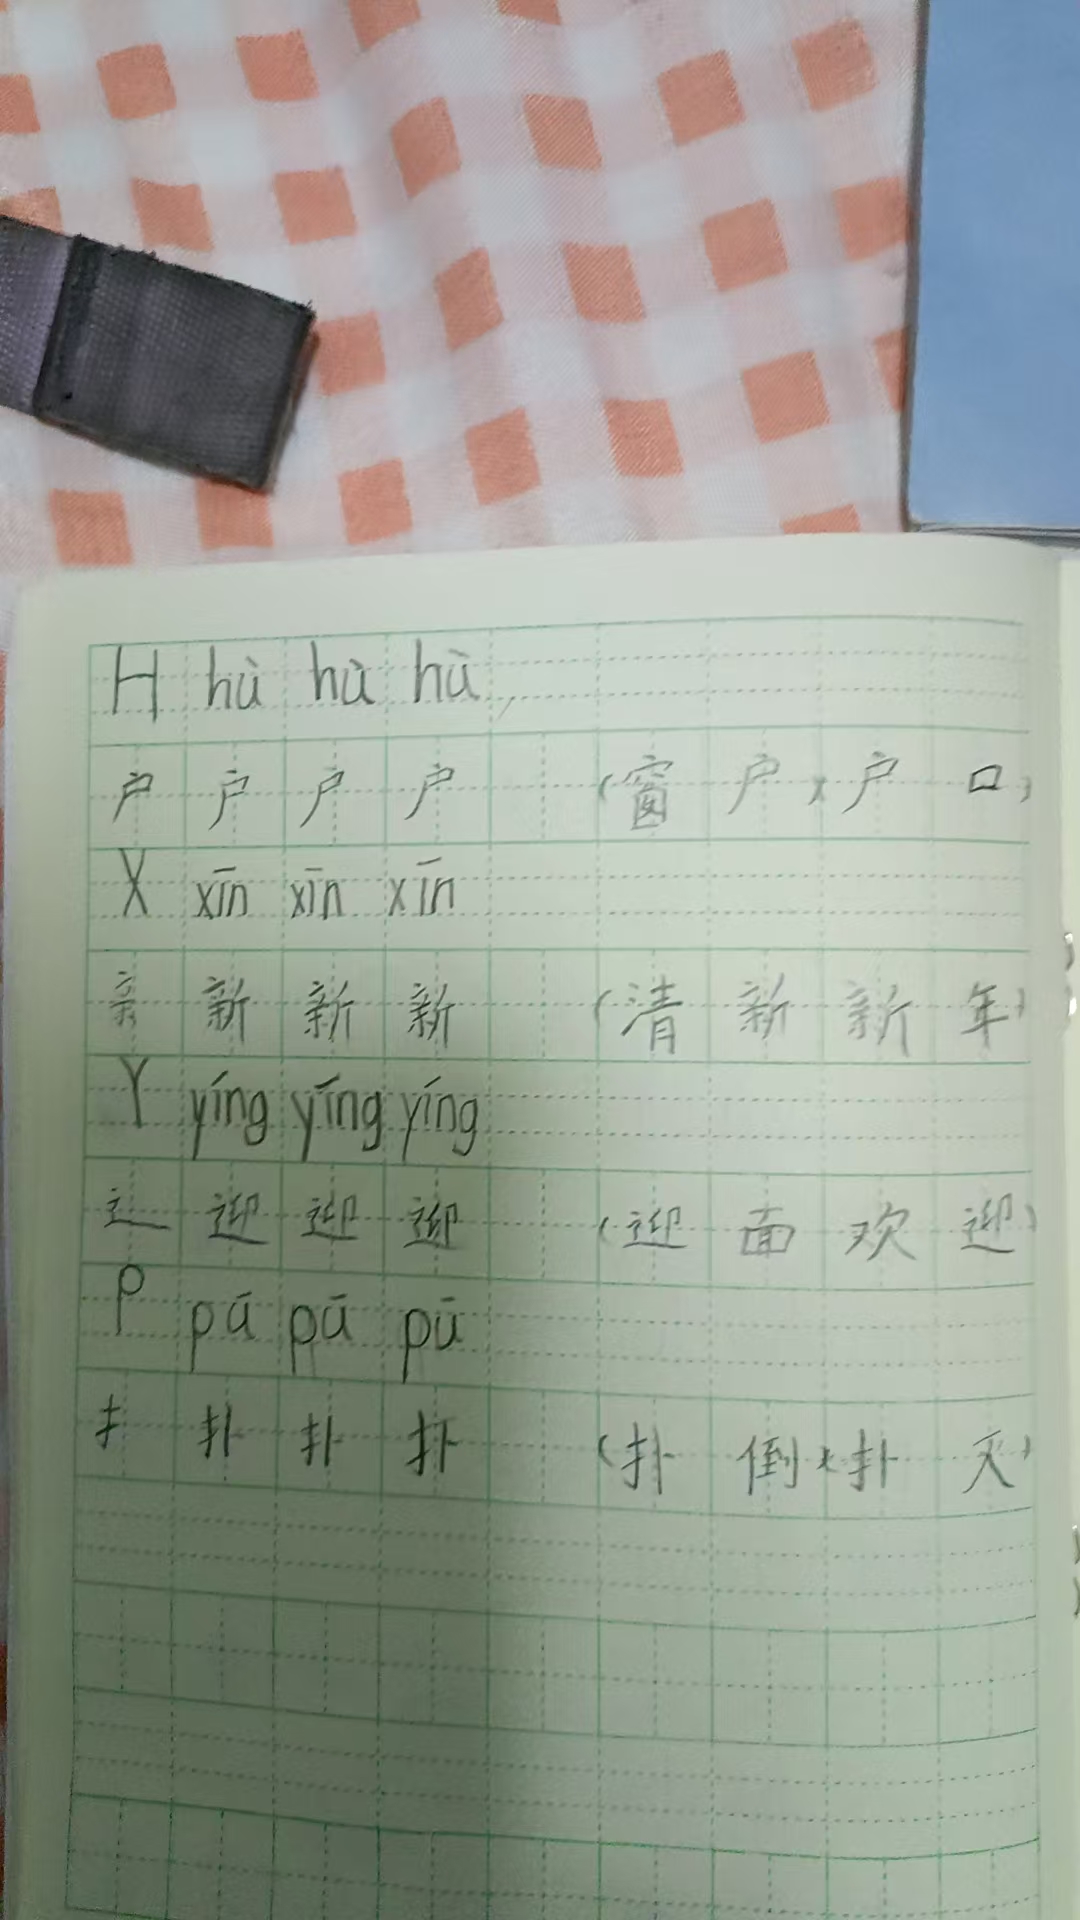 H hù hù hù
户 户 户 户 (窗 户 、 户 口)
X xīn xīn xīn
亲 新 新 新 (清 新 新 年)
Y yíng yíng yíng
辶 迎 迎 迎 (迎 面 欢 迎)
P pū pū pū
扌 扑 扑 扑 (扑 倒 、 扑 灭)